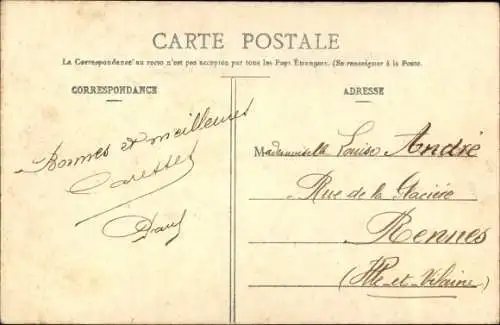 CARTE POSTALE
La Correspondance au recto n'est pas acceptée par tous les Pays Étrangers. (Se renseigner à la Poste.
CORRESPONDANCE
ADRESSE
Bonnes et meilleures
Caresses
Mademoiselle Louise André
Rue de la Glacière
Rennes
(Ille-et-Vilaine)